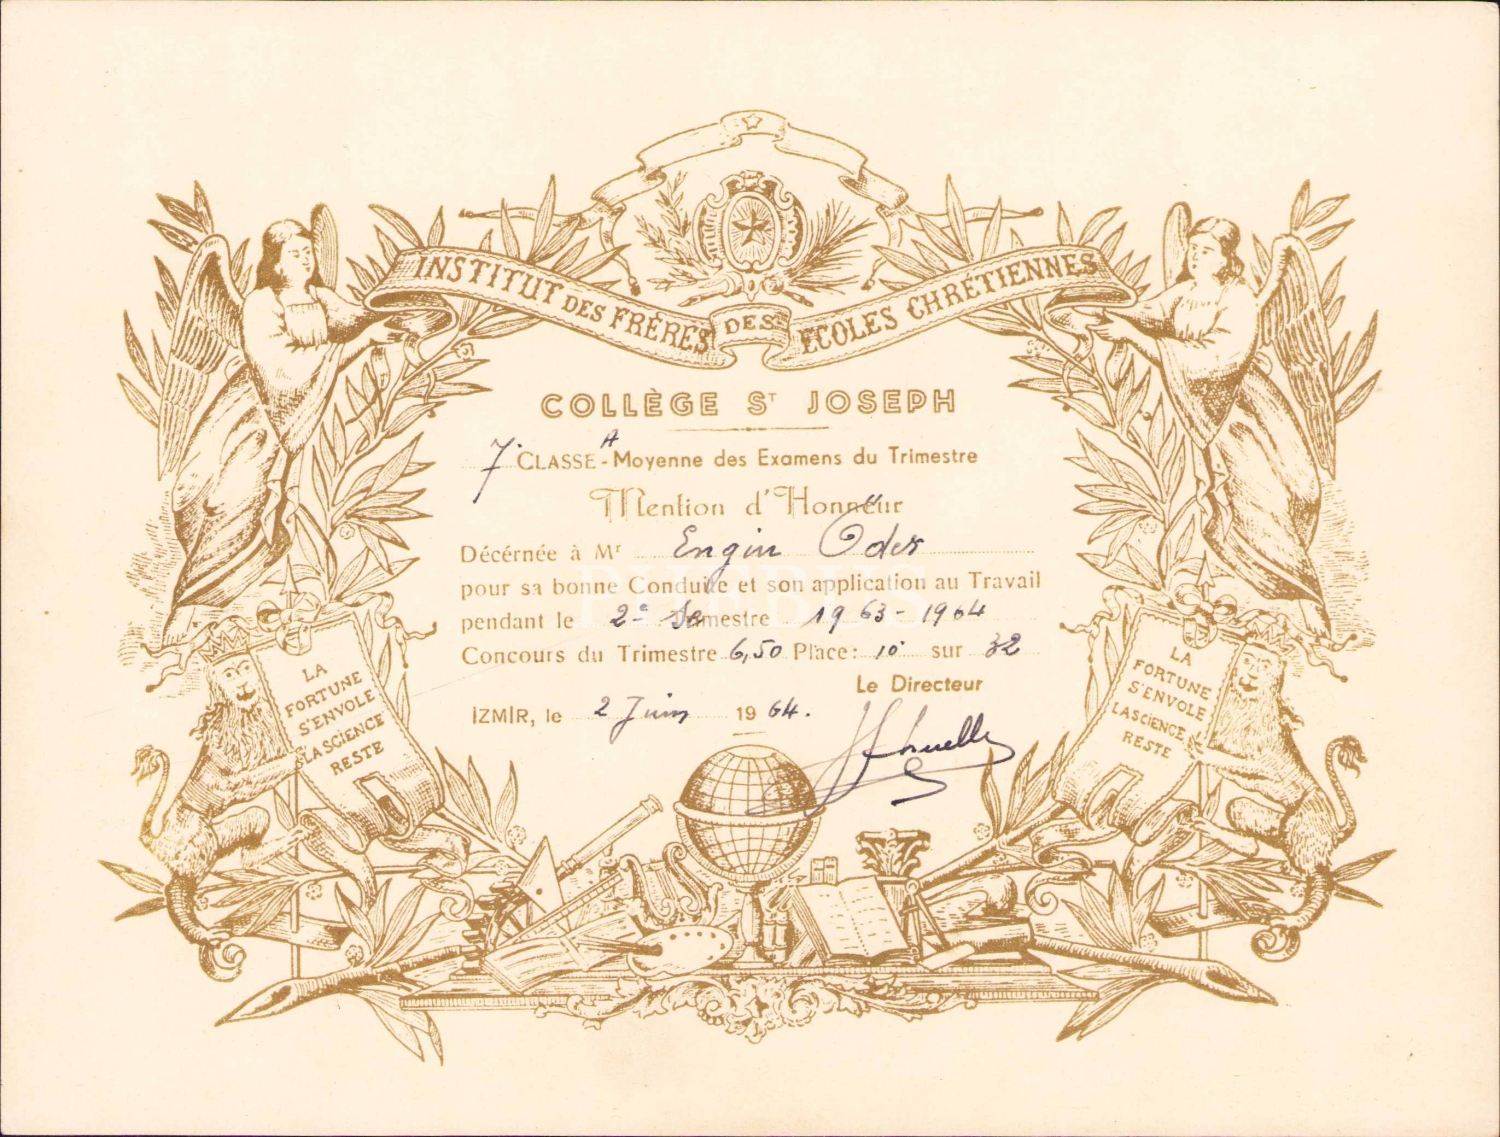 INSTITUT DES FRÈRES DES ECOLES CHRÉTIENNES
COLLÈGE ST JOSEPH
7e CLASSE A - Moyenne des Examens du Trimestre
Mention d'Honneur
Décérnée à Mr Engin Öder
pour sa bonne Conduite et son application au Travail
pendant le 2e Semestre 1963-1964
Concours du Trimestre 6,50 Place: 10e sur 32
Le Directeur
İZMİR, le 2 Juin 1964.
LA
FORTUNE
S'ENVOLE
LA SCIENCE
RESTE
LA
FORTUNE
S'ENVOLE
LA SCIENCE
RESTE
PHEBUS